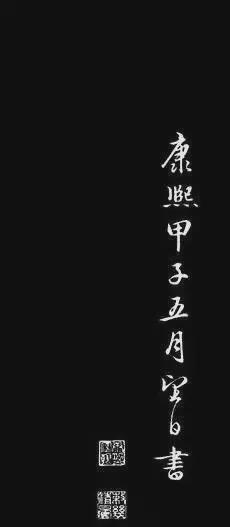 康熙甲子五月望日書